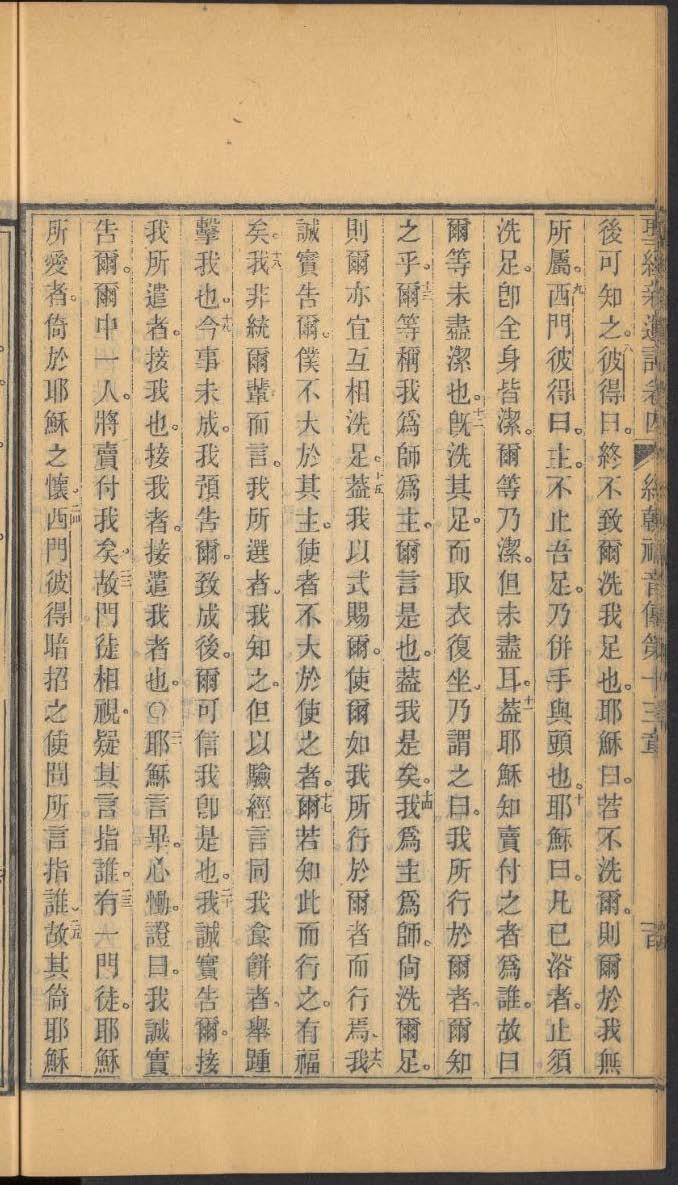 聖經新遺詔卷四 約翰福音傳第十三章
後可知之。八彼得曰。終不致爾洗我足也。耶穌曰。若不洗爾。則爾於我無
所屬。九西門彼得曰。主。不止吾足。乃併手與頭也。十耶穌曰。凡已浴者。止須
洗足。卽全身皆潔。爾等乃潔。但未盡耳。十一蓋耶穌知賣付之者爲誰。故曰
爾等未盡潔也。十二旣洗其足。而取衣復坐。乃謂之曰。我所行於爾者。爾知
之乎。十三爾等稱我爲師爲主。爾言是也。蓋我是矣。十四我爲主爲師。尙洗爾足。
則爾亦宜互相洗足。十五蓋我以式賜爾。使爾如我所行於爾者而行焉。十六我
誠實告爾。僕不大於其主。使者不大於使之者。十七爾若知此而行之。有福
矣。十八我非統爾輩而言。我所選者。我知之。但以驗經言同我食餅者。舉踵
擊我也。十九今事未成。我預告爾。致成後。爾可信我卽是也。二十我誠實告爾。接
我所遣者。接我也。接我者。接遣我者也。○二一耶穌言畢。心慟。證曰。我誠實
告爾。爾中一人。將賣付我矣。二二故門徒相視。疑其言指誰。二三有一門徒。耶穌
所愛者。倚於耶穌之懷。二四西門彼得暗招之使問所言指誰。二五故其倚耶穌